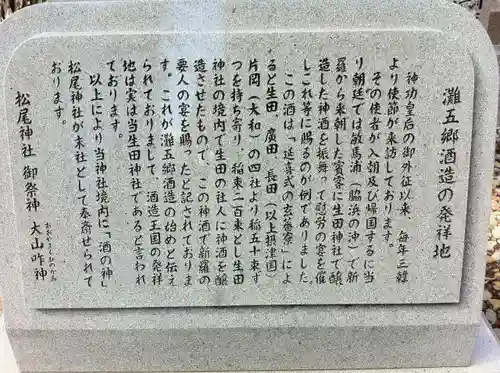 灘五郷酒造の発祥地
神功皇后の御外征以来、毎年三韓
より使節が来訪しております。
その使者が入朝及び帰国するに当
り朝廷では敏馬浦(脇浜の沖)で新
羅から来朝した賓客に生田神社で醸
造した神酒を振舞って慰労の宴を催
しこれ等に賜るのが例でありました。
この酒は「延喜式の玄蕃寮」によ
ると生田、廣田、長田(以上摂津国)
片岡(大和)の四社より稲五十束ず
つを持ち寄り、稲束二百束とし生田
神社の境内で生田の社人に神酒を醸
造させたもので、この神酒で新羅の
要人の宴を賜ったと記されておりま
す。これが灘五郷酒造の始めと伝え
られておりまして、酒造王国の発祥
地は実は当生田神社であると言われ
ております。
以上により当神社境内に「酒の神」
松尾神社が末社として奉斎せられて
おります。
松尾神社 御祭神 大山咋神
おおやまくいのかみ